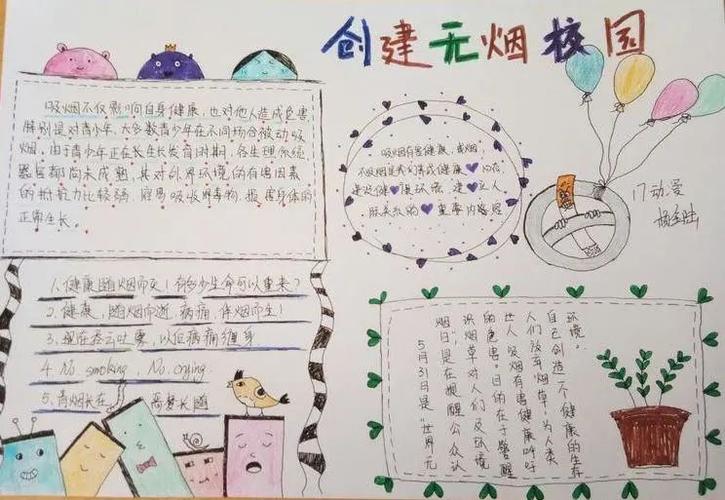 创建无烟校园
吸烟不仅影响自身健康,也对他人造成危害,
特别是对青少年,大多数青少年在不同场合被动吸
烟,由于青少年正在长生长发育时期,各生理系统
器官都尚未成熟,其对外界环境的有害因素
的抵抗力比较弱,容易吸收毒物,损害身体的
正常生长。
吸烟有害健康,戒烟,
不吸烟是我们养成健康
建设健康环境,建立人
际关系的重要内容
17动爱
1.健康随烟而灭!有多少生命可以重来?
2.健康,随烟而逝,病痛,伴烟而生!
3.现在吞云吐雾,以后病痛缠身
4.No smoking, No crying.
5.青烟长在 恶梦长圆
5月31日是“世界无
烟日”是在提醒公众认
识烟草对人们及环境
的危害。目的在于警醒
世人吸烟有害健康呼吁
人们放弃烟草,为人类
自己创造一个健康的生存
环境。